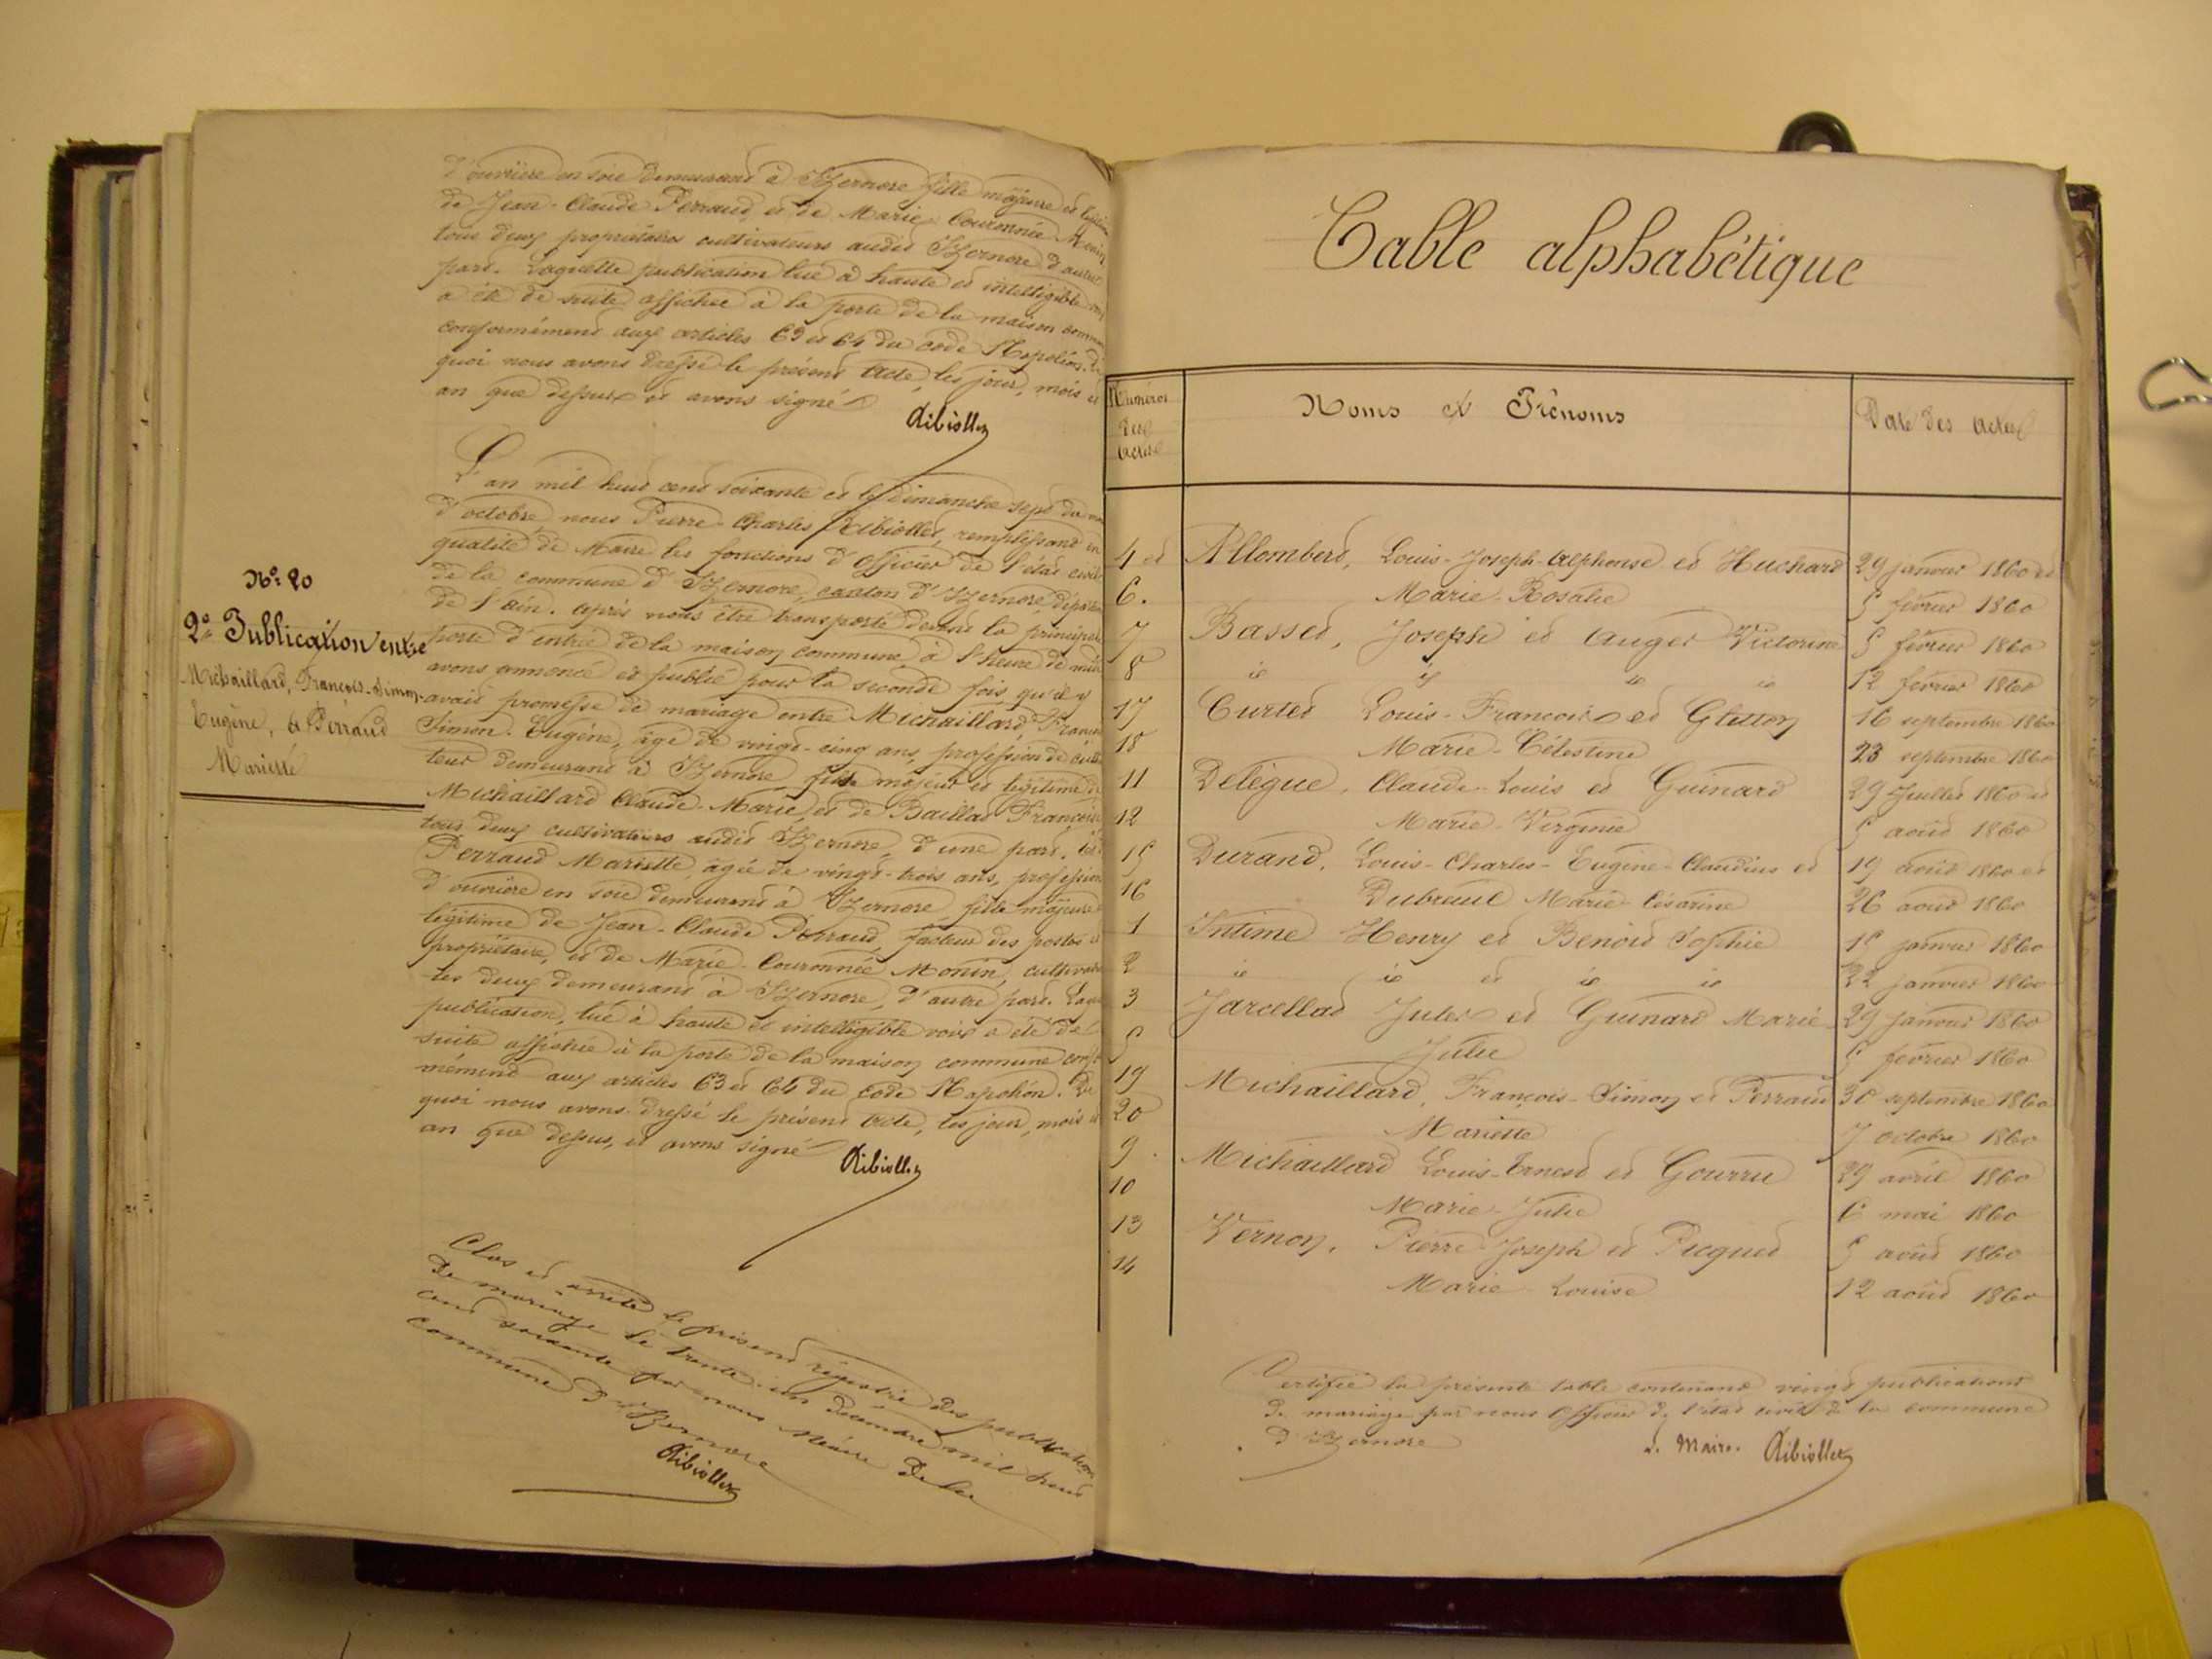 d'ouvrière en soie demeurant à Izernore fille majeure et
de Jean-Claude Perraud, et de Marie Couronnée Monin
tous deux propriétaires cultivateurs audit Izernore d'autre
part. Laquelle publication lue à haute et intelligible voix
a été de suite affichée à la porte de la maison commune
conformément aux articles 63 et 64 du code Napoléon. De
quoi nous avons dressé le présent acte, les jour, mois et
an que dessus et avons signé
Ribiollet
N° 20
2e Publication entre
Michaillard, François-Simon-
Eugène, et Perraud
Mariette
L'an mil huit cent soixante et le dimanche sept du mois
d'octobre, nous Pierre-Charles Ribiollet, remplissant en
qualité de Maire les fonctions d'officier de l'état civil
de la commune d'Izernore, canton d'Izernore, départ
de l'ain. après nous être transporté devant la principale
porte d'entrée de la maison commune, à l'heure de midi
avons annoncé et publié pour la seconde fois, qu'il y
avait promesse de mariage entre Michaillard, François
Simon-Eugène, âgé de vingt-cinq ans, profession de cultiva
teur demeurant à Izernore, fils majeur et légitime de
Michaillard Claude-Marie, et de Baillat Françoise
tous deux cultivateurs audit Izernore, d'une part, et
Perraud Mariette, âgée de vingt-trois ans, profession
d'ouvrière en soie demeurant à Izernore, fille majeure
légitime de Jean-Claude Perraud, facteur des postes et
propriétaire, et de Marie-Couronnée Monin, cultivatrice
les deux demeurant à Izernore, d'autre part. Laquelle
publication, lue à haute et intelligible voix a été de
suite affichée à la porte de la maison commune confor
mément aux articles 63 et 64 du code Napoléon. De
quoi nous avons dressé le présent acte, les jour, mois et
an que dessus, et avons signé
Ribiollet
Clos et arrêté le présent régistre des publications
de mariage le trente un décembre mil huit
cent soixante par nous Maire de la
commune d'Izernore
Ribiollet
Table alphabétique
Numéros
des
Actes
Noms et Prénoms
Date des actes
4 et Allombert, Louis-Joseph-Alphonse et Huchard 29 janvier 1860 et
6. Marie-Rosalie 5 février 1860
7 Basset, Joseph et Auger Victorine 5 février 1860
8 id id id id 12 février 1860
17 Curtet Louis-François et Gletton 16 septembre 1860
18 Marie-Célestine 23 septembre 1860
11 Delègue, Claude-Louis et Guinard 29 Juillet 1860 et
12 Marie-Virginie 5 août 1860
15 Durand, Louis-Charles-Eugène-Claudius et 19 août 1860 et
16 Dubreuil Marie-Césarine 26 août 1860
1 Intime Henry et Benoit Sophie 15 janvier 1860
2 id id et id id 22 janvier 1860
3 Jarcellat Jules et Guinard Marie- 29 janvier 1860
5 Julie 5 février 1860
19 Michaillard, François-Simon et Perraud 30 septembre 1860
20 Mariette 7 octobre 1860
9. Michaillard Louis-Ernest et Gourru 29 avril 1860
10 Marie-Julie 6 mai 1860
13 Vernoy, Pierre-Joseph et Picquet 5 août 1860
14 Marie-Louise 12 août 1860
Certifié la présente table contenant vingt publications
de mariage par nous Officier de l'état civil de la commune
d'Izernore
Le Maire. Ribiollet